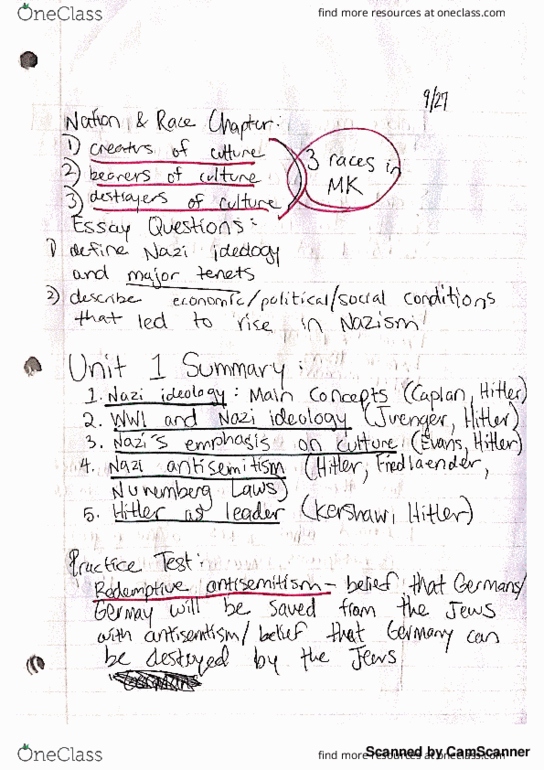 OneClass
find more resources at oneclass.com
9/27
Nation & Race Chapter:
1) creators of culture
2) bearers of culture
3) destroyers of culture
3 races in
MK
Essay Questions:
1) define Nazi ideology
and major tenets
2) describe economic/political/social conditions
that led to rise in Nazism
Unit 1 Summary:
1. Nazi ideology: Main Concepts (Caplan, Hitler)
2. WWI and Nazi ideology (Juenger, Hitler)
3. Nazi's emphasis on culture (Evans, Hitler)
4. Nazi antisemitism (Hitler, Friedlaender,
Nuremberg Laws)
5. Hitler as leader (Kershaw, Hitler)
Practice Test:
Redemptive antisemitism - belief that Germans/
Germay will be saved from the Jews
with antisemtism/belief that Germany can
be destroyed by the Jews
OneClass
find more resources at oneclass.com
Scanned by CamScanner